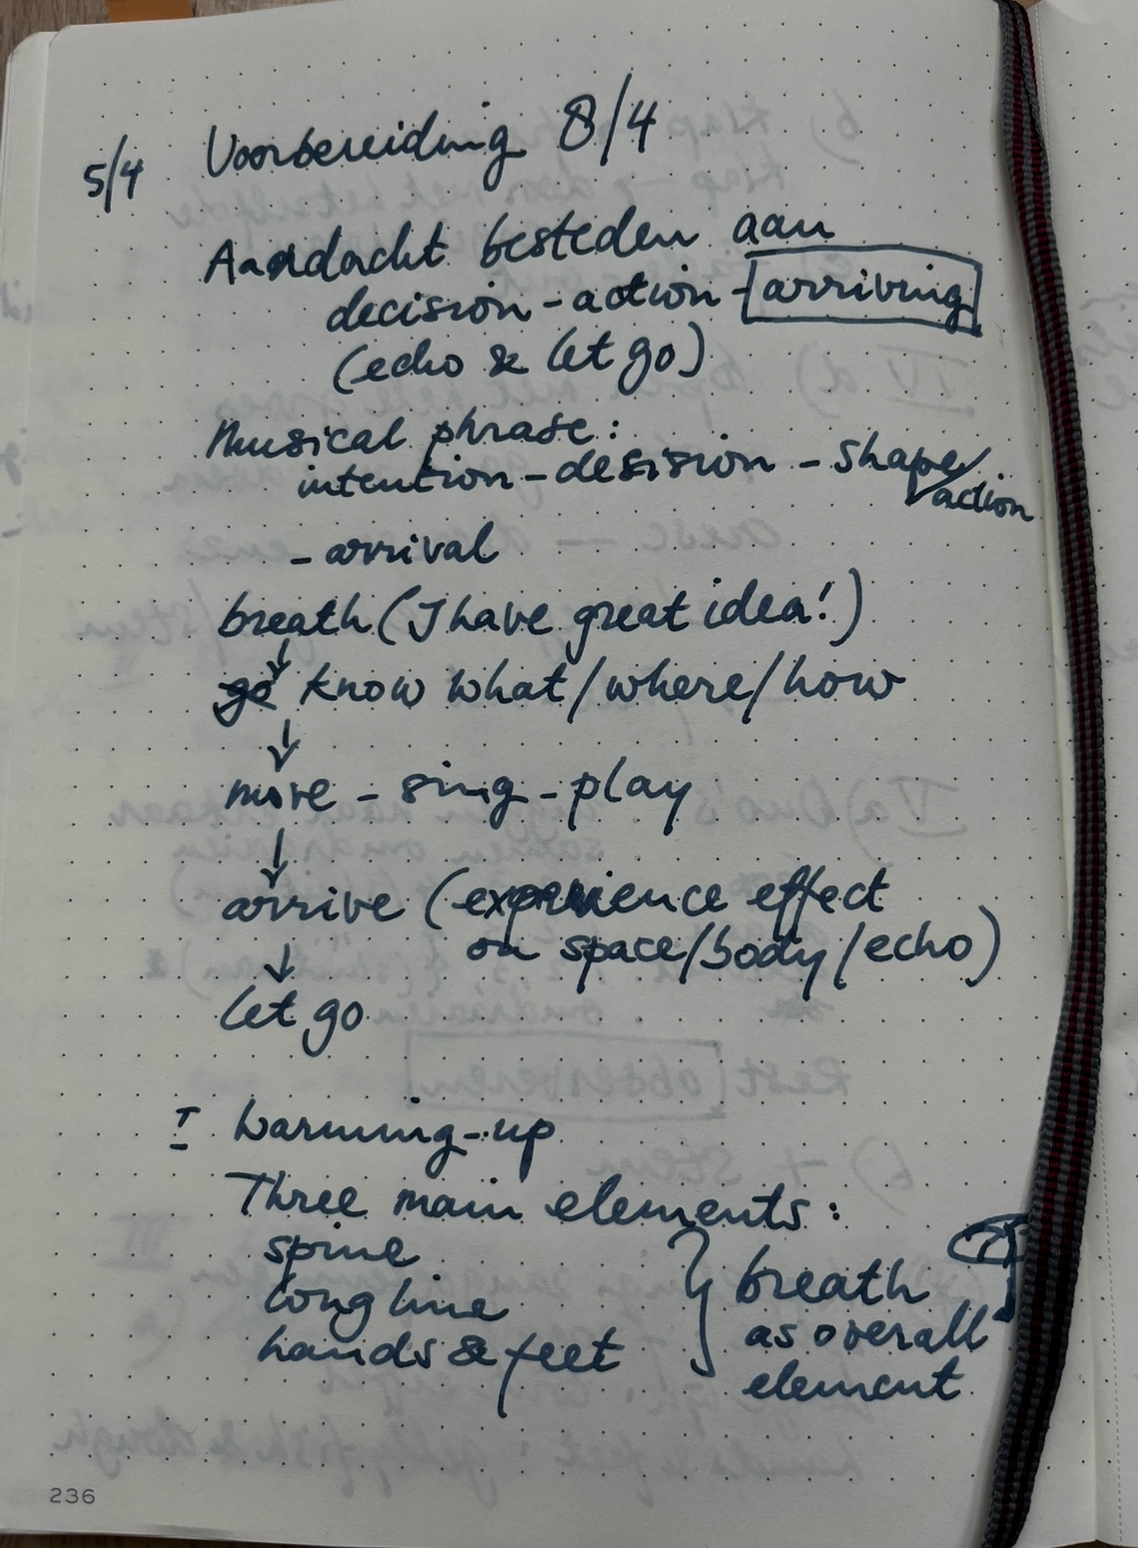 5/4 Voorbereiding 8/4
Aandacht besteden aan
decision - action - arriving
(echo & let go)
Musical phrase:
intention - desision - shape/
action
- arrival
breath (I have great idea!)
↓
go know what/where/how
↓
move - sing - play
↓
arrive (experience effect
on space/body/echo)
↓
let go
I warming-up
Three main elements:
spine
long line
hands & feet
} breath
as overall
element
236